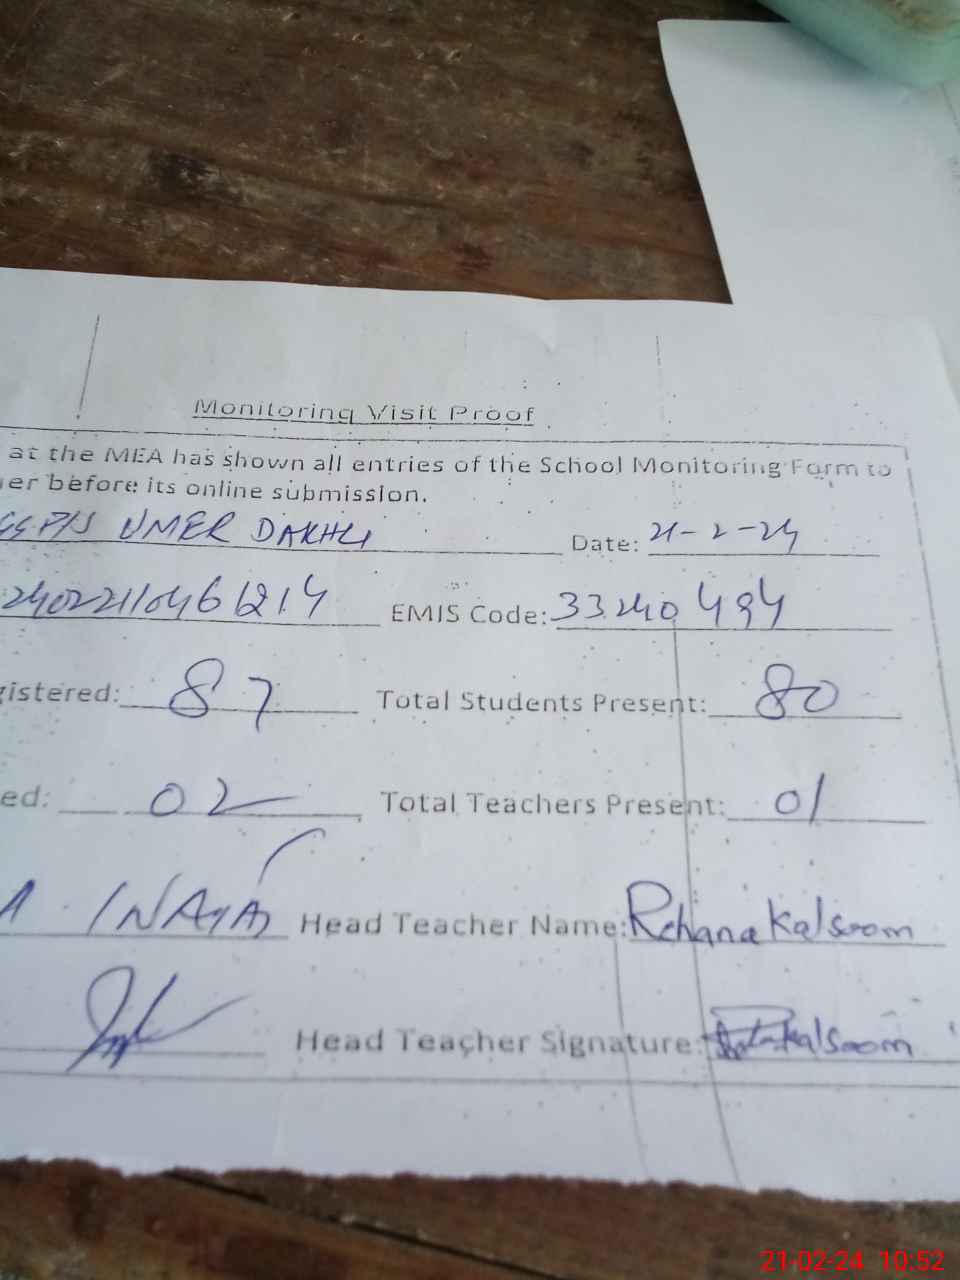 Monitoring Visit Proof
at the MEA has shown all entries of the School Monitoring Form to
er before its online submission.
UMER DAKHLI Date: 21-2-24
EMIS Code: 33240494
gistered: 87 Total Students Present: 80
ed: 02 Total Teachers Present: 01
A INAYA Head Teacher Name: Rehana Kalsoom
Head Teacher Signature: Kalsoom
21-02-24 10:52